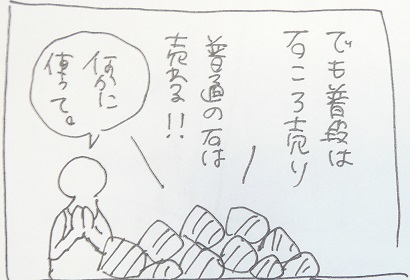 でも普段は
石ころ売り
普通の石は
売れる!!
何かに
使って。